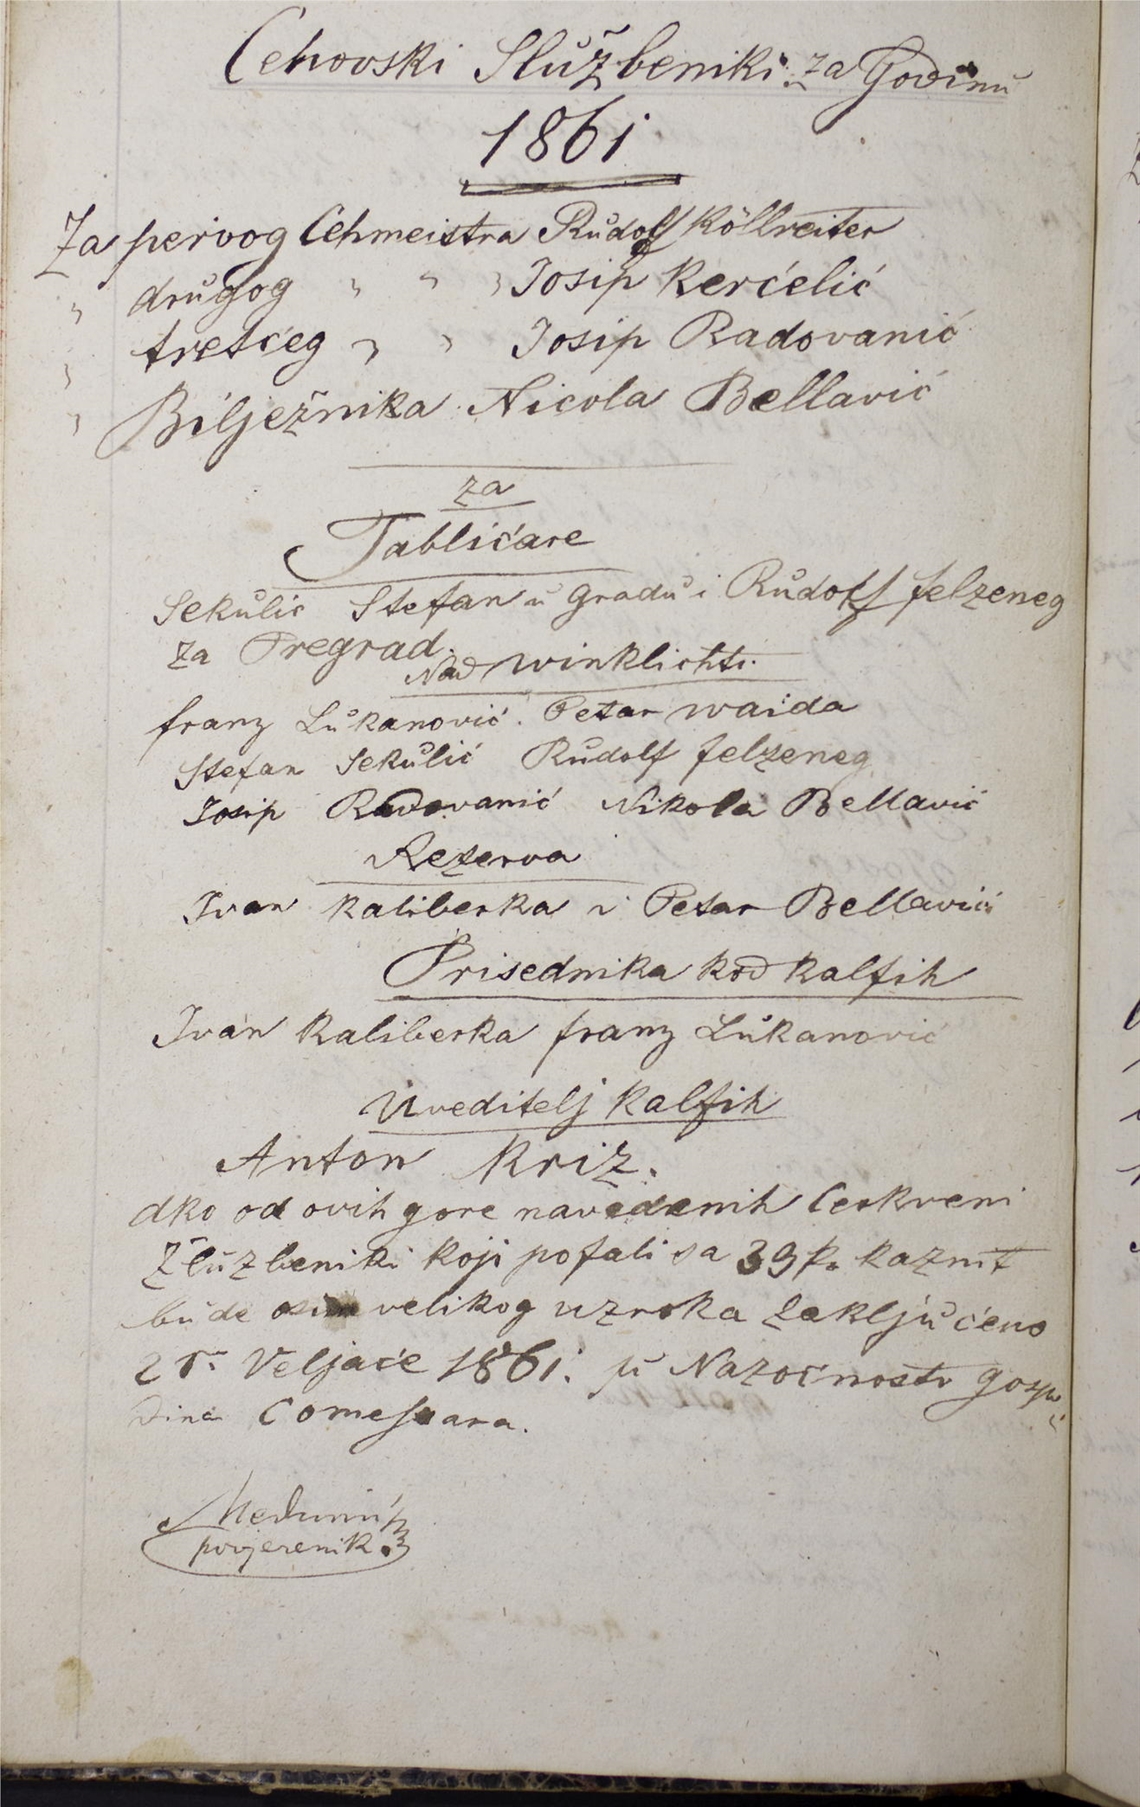 Cehovski Službeniki za Godinu
1861
Za pervog Cehmeistra Rudolf Köllreiter
" drugog " " " Josip Kerćelić
" tretćeg " " Josip Radovanić
" Bilježnika Nicola Bellavić
za
Tablićare
Sekulic Stefan u Gradu i Rudolf felzeneg
za Pregrad.
Nad winklichti.
franz Lukanović. Petar waida
Stefan Sekulić Rudolf felzeneg
Josip Radovanić Nikola Bellavić
Rezerva
Ivan Kaliberka i Petar Bellavić
Prisednika kod kalfih
Ivan Kaliberka franz Lukanović
Uveditelj kalfih
Anton Kriz.
dko od ovih gore navedenih Cerkveni
Službeniki koji pofali sa 39 k. kaznit
bude osim velikog uzroka zaključeno
Veljaće 1861. u Nazočnosti gospo
dina Comessara.
povjerenik.